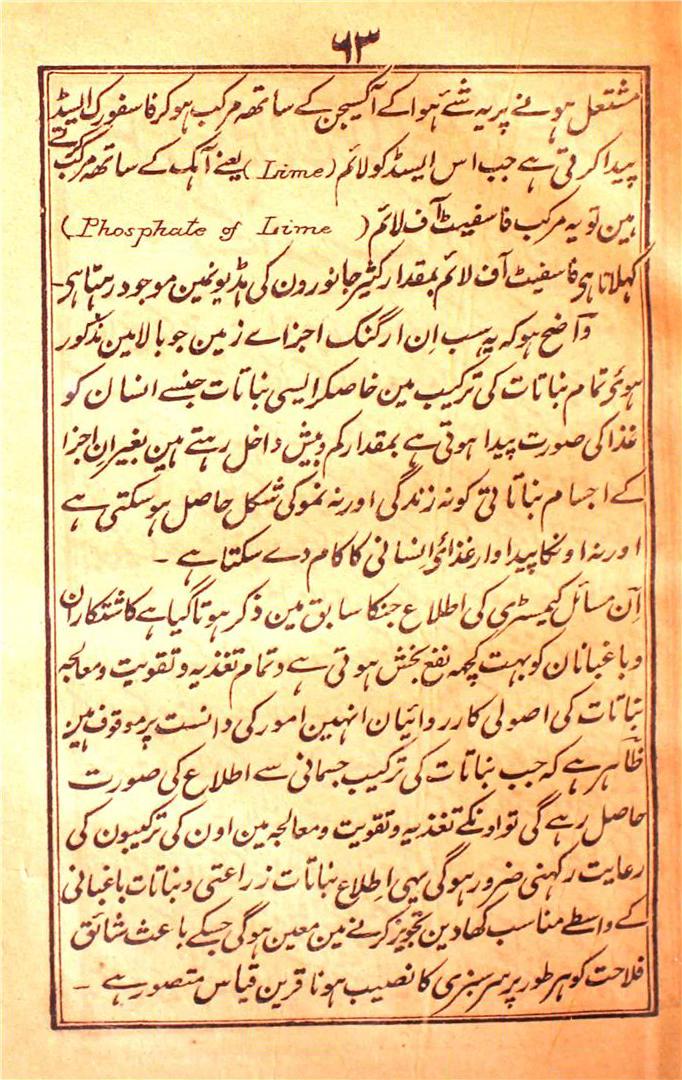 ۶۳
مشتعل ہونے پر یہ شئے ہوا کے آکسیجن کے ساتھہ مرکب ہوکر فاسفورک ایسڈ
پیدا کرتی ہے جب اس ایسڈ کو لائم (Lime) یعنے آہک کے ساتھہ مرکب کرتے
ہین تو یہ مرکب فاسفیٹ آف لائم (Phosphate of Lime)
کہلاتا ہی فاسفیٹ آف لائم بمقدار کثیر جانورون کی ہڈیونمین موجود رہتا ہی۔
واضح ہو کہ یہ سب اِن ارگنک اجزاے زمین جو بالا مین مذکور
ہوئی تمام نباتات کی ترکیب مین خاصکر ایسی نباتات جنسے انسان کو
غذا کی صورت پیدا ہوتی ہے بمقدار کم و بیش داخل رہتے ہین بغیر اِن اجزا
کے اجسام نباتاتی کو نہ زندگی اور نہ نمو کی شکل حاصل ہوسکتی ہے
اور نہ اونکا پیداوار غذائی انسانی کا کام دے سکتا ہے ۔
اِن مسائل کیمسٹری کی اطلاع جنکا سابق مین ذکر ہوتا گیا ہے کاشتکاران
و باغبانان کو بہت کچھہ نفع بخش ہوتی ہے و تمام تغذیہ و تقویت و معالجہ
نباتات کی اصولی کارروائیان انہین امور کی دانست پر موقوف ہین
ظاہر ہے کہ جب نباتات کی ترکیب جسمانی سے اطلاع کی صورت
حاصل رہے گی تو اونکے تغذیہ و تقویت و معالجہ مین اون کی ترکیبون کی
رعایت رکہنی ضرور ہوگی یہی اطلاع نباتات زراعتی و نباتات باغبانی
کے واسطے مناسب کھادین تجویز کرنے مین معین ہوگی جسکے باعث شائق
فلاحت کو ہر طور پر سرسبزی کا نصیب ہونا قرین قیاس متصور ہے ۔